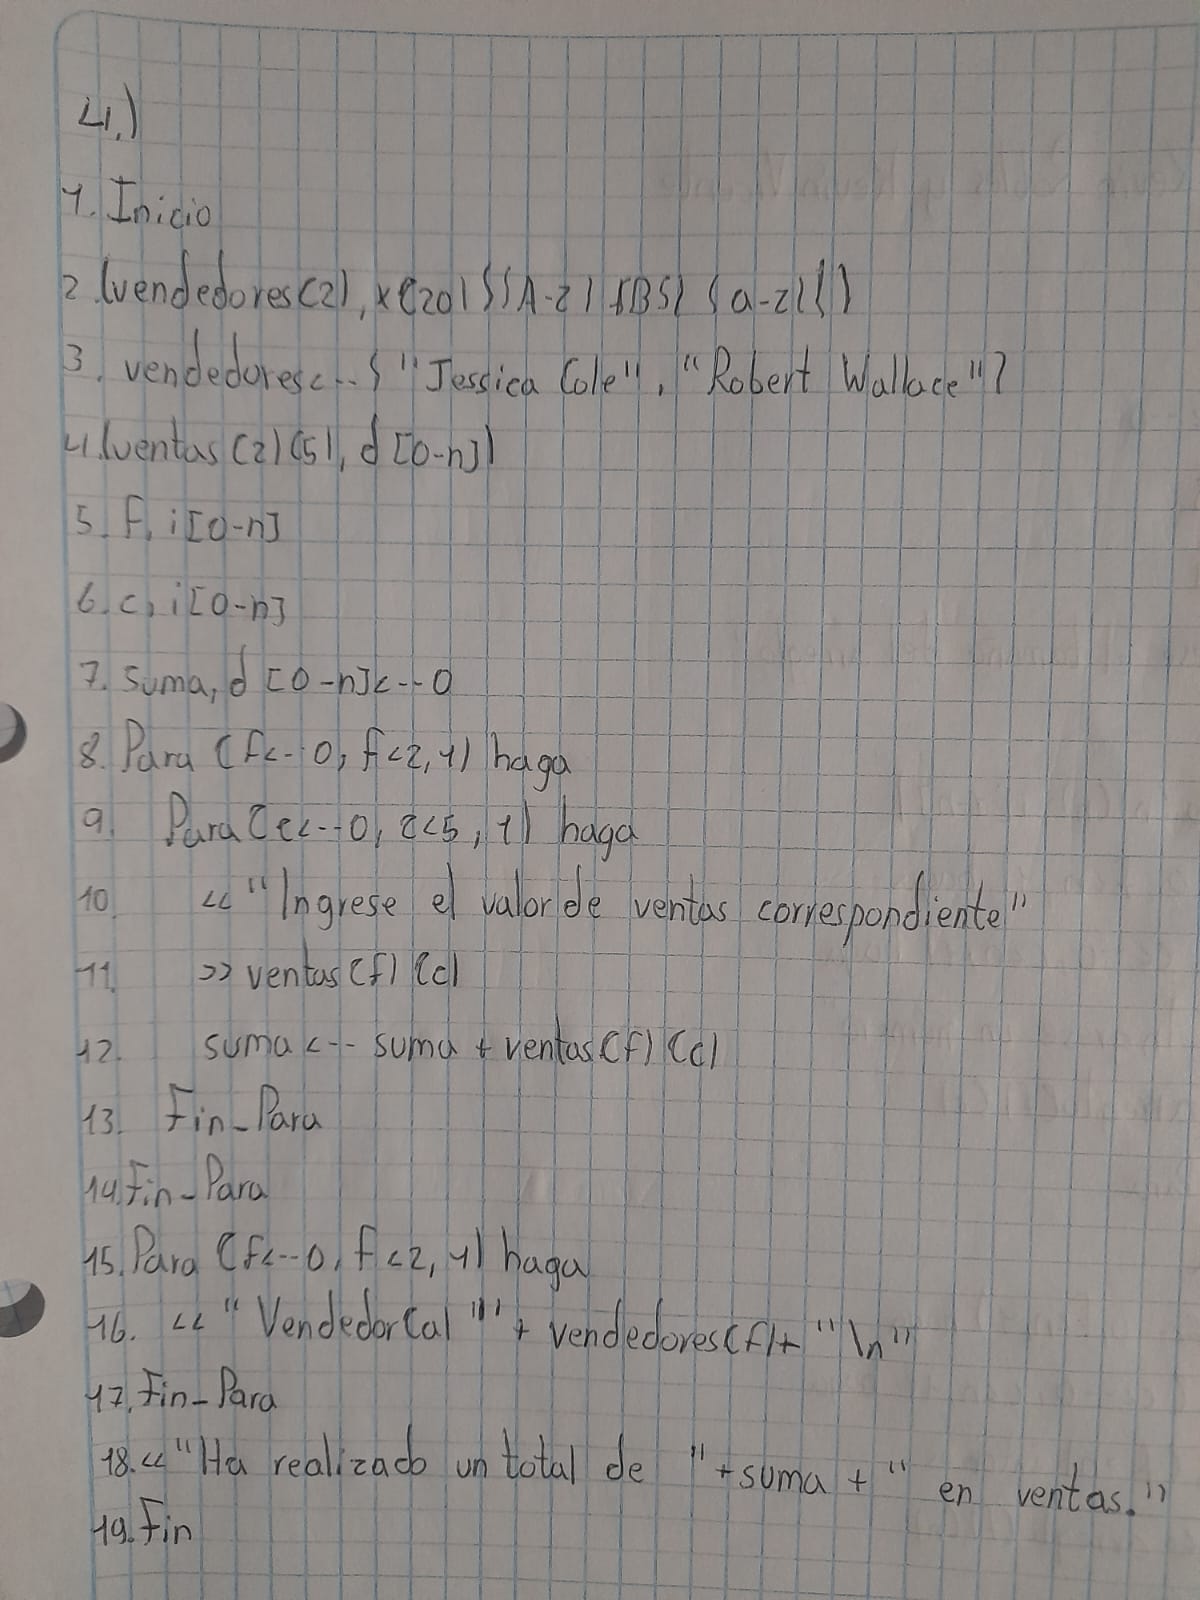 4.)
1. Inicio
2. (vendedores(2), x(20){{A-z} {BS} {a-z}{})
3. vendedores<--{"Jessica Cole", "Robert Wallace"}
4. (ventas(2)(5), d[0-n])
5. f, i[0-n]
6. c, i[0-n]
7. suma, d[0-n]<--0
8. Para (f<--0, f<2, 1) haga
9. Para (c<--0, c<5, 1) haga
10. << "Ingrese el valor de ventas correspondiente"
11. >> ventas(f)(c)
12. suma <-- suma + ventas(f)(c)
13. Fin-Para
14. Fin-Para
15. Para (f<--0, f<2, 1) haga
16. << "Vendedor(a) "" + vendedores(f)+ "\n"
17. Fin-Para
18. << "Ha realizado un total de "+suma +" en ventas."
19. Fin